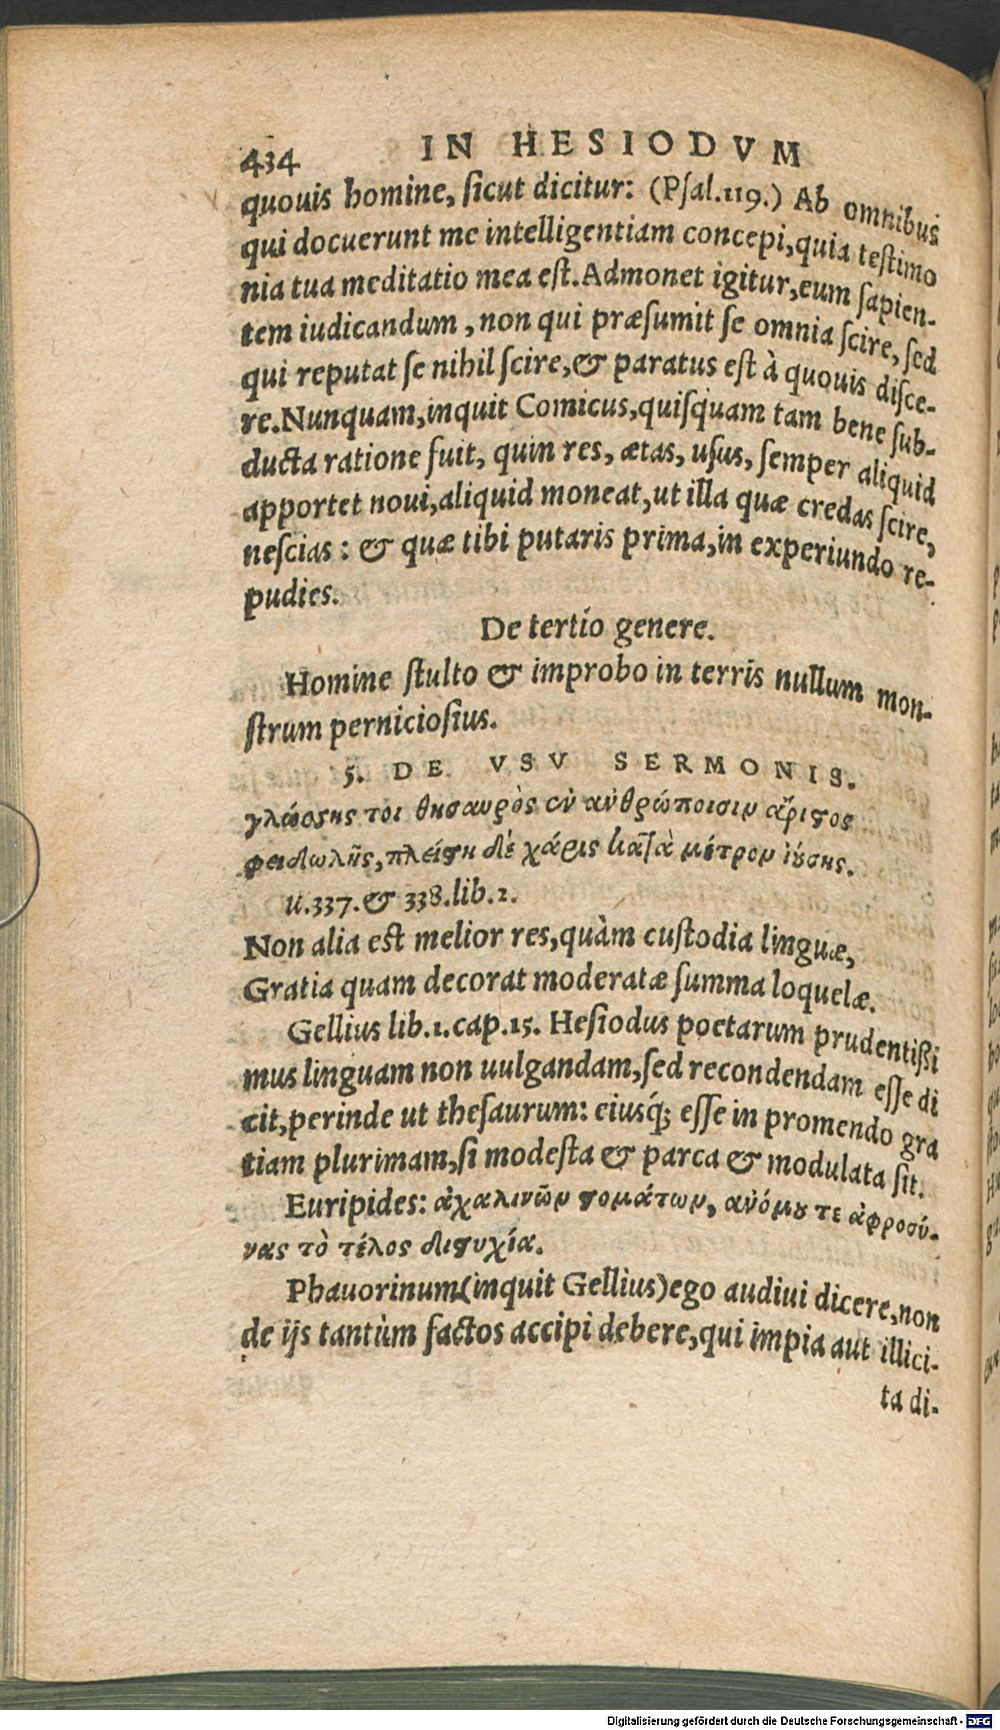 434 IN HESIODVM
quouis homine, ſicut dicitur: (Pſal.119.) Ab omnibus
qui docuerunt me intelligentiam concepi,quia teſtimo
nia tua meditatio mea eſt.Admonet igitur,eum ſapien-
tem iudicandum, non qui præſumit ſe omnia ſcire, ſed
qui reputat ſe nihil ſcire,& paratus eſt à quouis diſce-
re.Nunquam,inquit Comicus,quiſquam tam bene ſub-
ducta ratione fuit, quin res, ætas, uſus, ſemper aliquid
apportet noui,aliquid moneat,ut illa quæ credas ſcire,
neſcias: & quæ tibi putaris prima,in experiundo re-
pudies.
De tertio genere.
Homine ſtulto & improbo in terris nullum mon-
ſtrum pernicioſius.
5. DE VSV SERMONIS.
γλώσσης τοι θησαυρὸς ἐν ἀνθρώποισιν ἄριστος
φειδωλῆς,πλείστη δὲ χάρις κατὰ μέτρον ἰούσης.
u.337.& 338.lib.2.
Non alia eſt melior res,quàm cuſtodia linguæ,
Gratia quam decorat moderatæ ſumma loquelæ.
Gellius lib.1.cap.15. Heſiodus poetarum prudentißi
mus linguam non uulgandam,ſed recondendam eſſe di
cit,perinde ut theſaurum: eiusq́; eſſe in promendo gra
tiam plurimam,ſi modeſta & parca & modulata ſit.
Euripides: ἀχαλινῶν στομάτων, ἀνόμου τε ἀφροσύ-
νας τὸ τέλος διστυχία.
Phauorinum(inquit Gellius)ego audiui dicere,non
de ijs tantùm factos accipi debere,qui impia aut illici-
ta di-
Digitalisierung gefördert durch die Deutsche Forschungsgemeinschaft - DFG